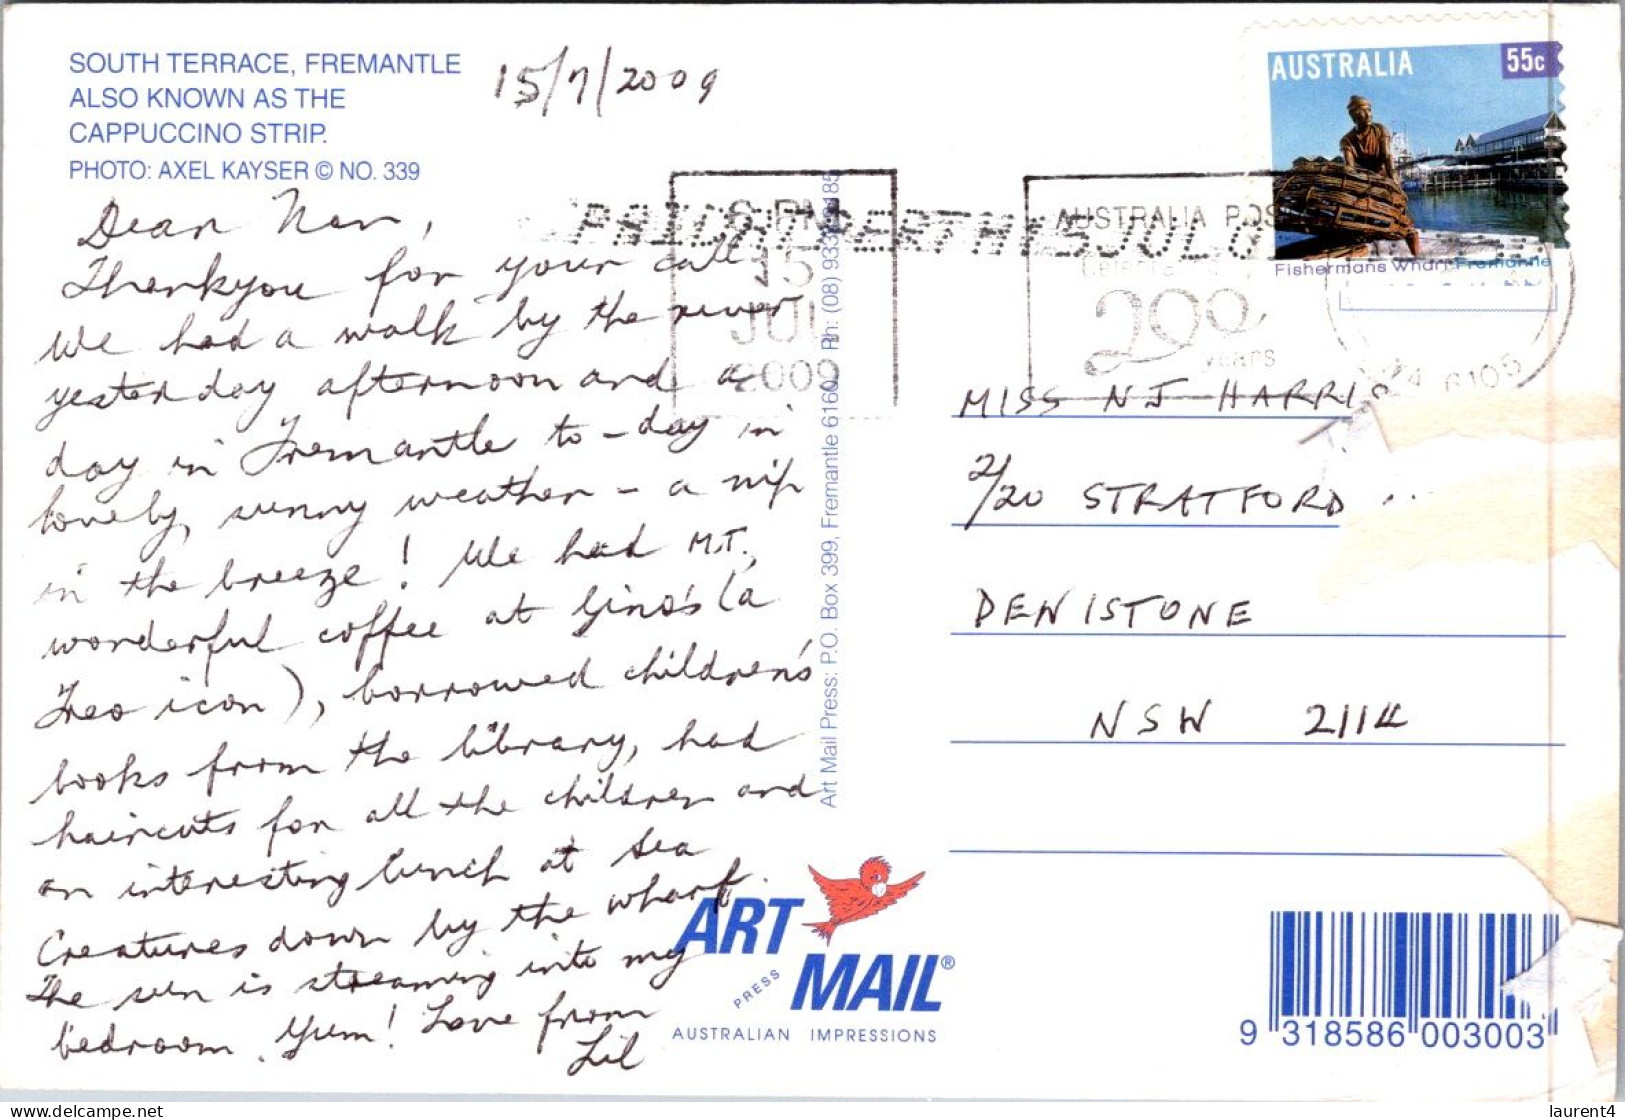 SOUTH TERRACE, FREMANTLE
ALSO KNOWN AS THE
CAPPUCCINO STRIP.
PHOTO: AXEL KAYSER © NO. 339
15/7/2009
Dear Nan,
Thankyou for your call
We had a walk by the river
yesterday afternoon and a
day in Fremantle to-day in
lovely, sunny weather - a nip
in the breeze! We had M.T.,
wonderful coffee at Gino's (a
Freo icon), borrowed children's
books from the library, had
haircuts for all the children and
an interesting lunch at Sea
Creatures down by the wharf.
The sun is streaming into my
bedroom. Yum! Love from
Lil
AUSTRALIA 55c
Fishermans Wharf Fremantle
6 PM
15
JUL
2009
AUSTRALIA POST
200
YEARS
6105
MISS NJ HARRIS
2/20 STRATFORD
DENISTONE
NSW 2114
Art Mail Press: P.O. Box 399, Fremantle 6160. Ph: (08)
ART
MAIL®
PRESS
AUSTRALIAN IMPRESSIONS
9 318586 003003
delcampe.net
laurent4